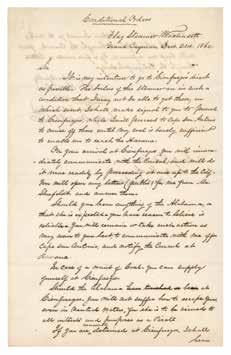 Conditional Orders
Flag Steamer Wachusett
Grand Cayman Dec. 31st 1862
Sir
It is my intention to go to Cienfuegos direct
if possible. The boilers of this Steamer are in such a
condition that I may not be able to get there, in
which event I shall make signal to you to proceed
to Cienfuegos, while I will proceed to Cape San Antonio
to cruise off there until my coal is barely sufficient
to enable me to reach the Havana.
On your arrival at Cienfuegos you will imme-
diately communicate with the Consul, and will do
it more readily by proceeding at once up to the City.
You will open any letters for me from Mr.
Shufeldt and answer them.
Should you learn anything of the Alabama, or
that she is expected you have reason to believe is
reliable you will remain or take such action as
may seem to you best to communicate with me off
Cape San Antonio, and notify the Consul at
Havana.
In case of a want of Coal you can supply
yourself at Cienfuegos.
Should the Alabama have touched or been at
Cienfuegos you will not suffer her to escape you
even in Neutral Waters, as she is to be considered to
all intents and purposes as a Pirate
If you are detained at Cienfuegos I shall